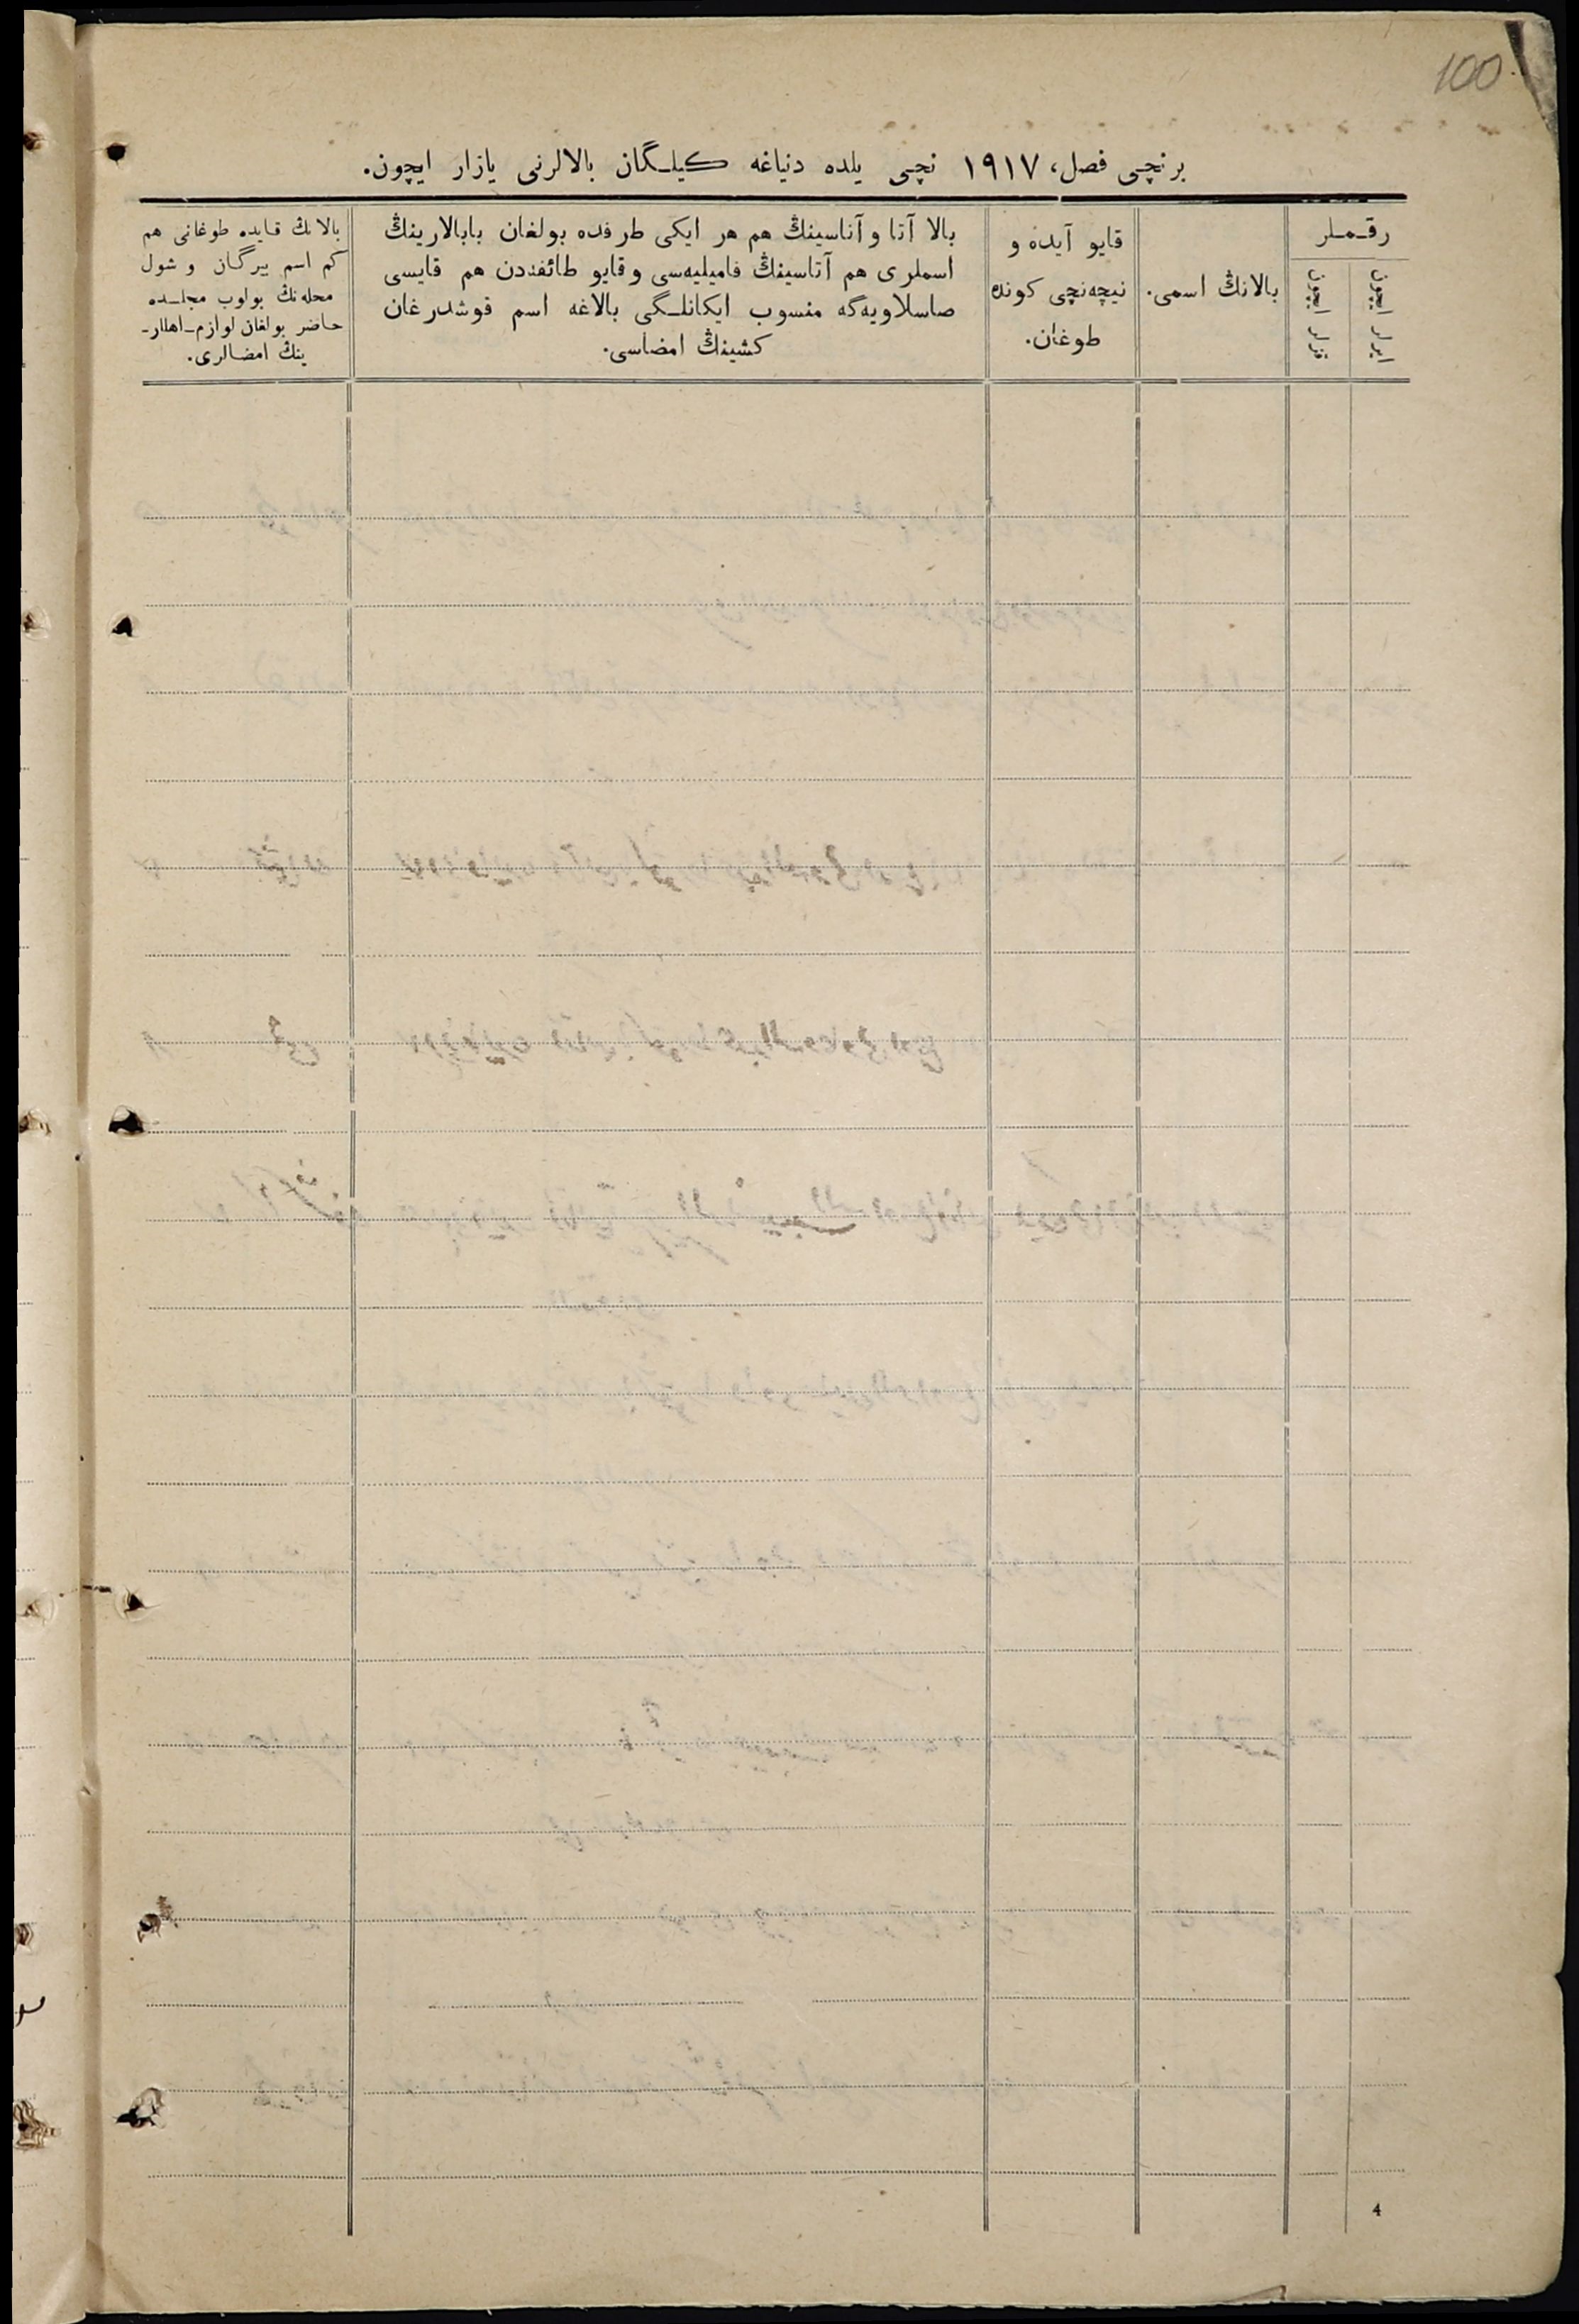 100
برنچی فصل، ١٩١٧ نچی یلده دنیاغه کیلـگان بالالرنی یازار ایچون.
رقـمـلر
ایرلر ایچون
قزلر ایچون
بالانڭ اسمی.
قایو آیده و
نیچه‌نچی کونده
طوغان.
بالا آتا و آناسینڭ هم هر ایکی طرفده بولغان بابالارینڭ
اسملری هم آتاسینڭ فامیلیه‌سی و قایو طائفه‌دن هم قایسی
صاسلاویه‌گه منسوب ایکانلـگی بالاغه اسم قوشدرغان
کشینڭ امضاسی.
بالانڭ قایده طوغانی هم
کم اسم بیرگان و شول
محله‌نڭ بولوب مجلـسده
حاضر بولغان لوازم‌ـ‌اهللرـ
ینڭ امضالری.
4